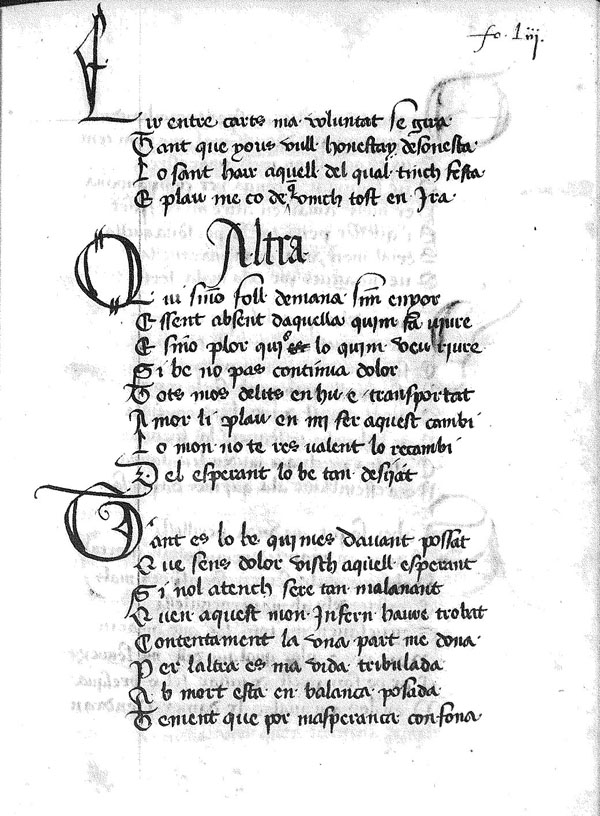 fo. liij.
Lir entre carts ma voluntat se gira
Tant que yous vull honestay desonesta
Lo sant hair aquell del qual tinch festa
E plau me ço de qᵒmch tost en Ira
Altra
Qui sino foll demana sim enyor
Essent absent daquella quim fa viure
E sino plor qui es lo quim veu riure
Si be no pas continua dolor
Tots mos delits en hu e transportat
Amor li plau en mi fer aquest cambi
Lo mon no te res valent lo recambi
Del esperant lo be tan desijat
Tant es lo be qui mes davant possat
Que sens dolor visch aquell esperant
Si nol atench sere tan malanant
Quen aquest mon Infern haure trobat
Contentament la una part me dona
Per laltra es ma vida tribulada
Ab mort esta en balança posada
Tement que por masperança confona